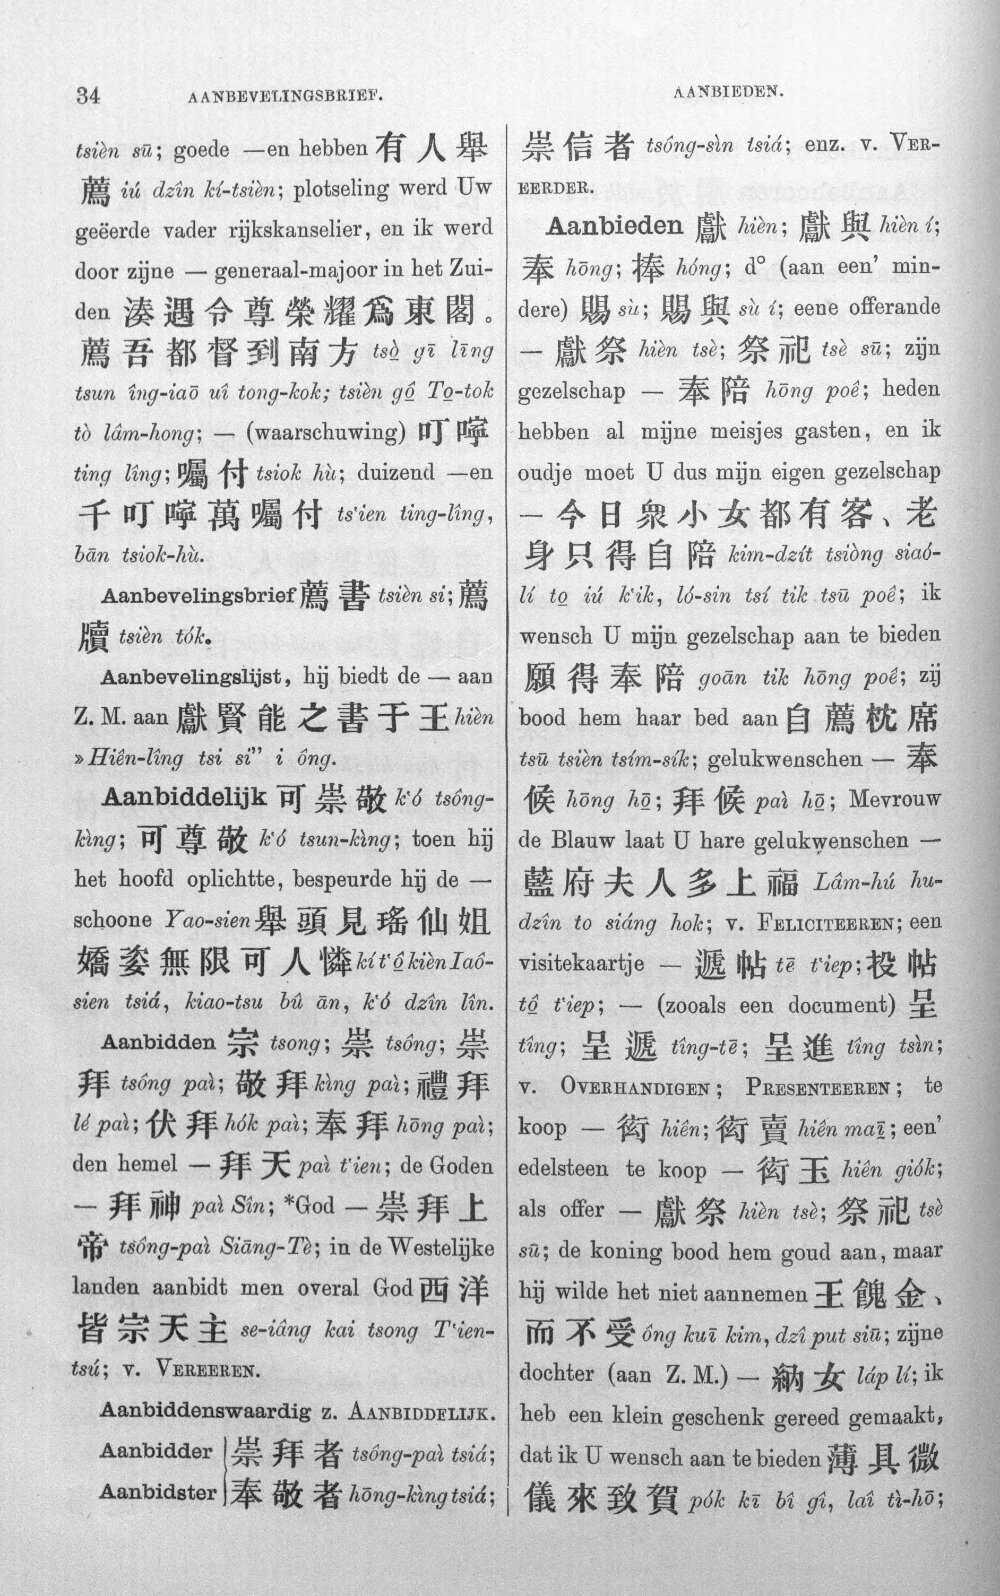 34 AANBEVELINGSBRIEF.
AANBIEDEN.
tsièn sū; goede —en hebben 有人舉
薦 iú dzîn kí-tsièn; plotseling werd Uw
geëerde vader rijkskanselier, en ik werd
door zijne — generaal-majoor in het Zui-
den 湊遇令尊榮耀爲東閣。
薦吾都督到南方 tsò̤ gī līng
tsun îng-iaō uî tong-kok; tsièn gô̤ To̤-tok
tò lâm-hong; — (waarschuwing) 叮嚀
ting lîng; 囑付 tsiok hù; duizend —en
千叮嚀萬囑付 ts‘ien ting-lîng,
bān tsiok-hù.
Aanbevelingsbrief 薦書 tsièn si; 薦
牘 tsièn tók.
Aanbevelingslijst, hij biedt de — aan
Z. M. aan 獻賢能之書于王 hièn
»Hiên-lîng tsi si” i ông.
Aanbiddelijk 可崇敬 k‘ó tsông-
kìng; 可尊敬 k‘ó tsun-kìng; toen hij
het hoofd oplichtte, bespeurde hij de —
schoone Yao-sien 舉頭見瑤仙姐
嬌姿無限可人憐 kí t‘ô̤ kièn Iaô-
sien tsiá, kiao-tsu bû ān, k‘ó dzîn lîn.
Aanbidden 宗 tsong; 崇 tsông; 崇
拜 tsông paì; 敬拜 kìng paì; 禮拜
lé paì; 伏拜 hók paì; 奉拜 hōng paì;
den hemel — 拜天 paì t‘ien; de Goden
— 拜神 paì Sîn; *God — 崇拜上
帝 tsông-paì Siāng-Tè; in de Westelijke
landen aanbidt men overal God 西洋
皆宗天主 se-iâng kai tsong T‘ien-
tsú; v. VEREEREN.
Aanbiddenswaardig z. AANBIDDELIJK.
Aanbidder 崇拜者 tsông-paì tsiá;
Aanbidster 奉敬者 hōng-kìng tsiá;
崇信者 tsông-sìn tsiá; enz. v. VER-
EERDER.
Aanbieden 獻 hièn; 獻與 hièn í;
奉 hōng; 捧 hóng; d° (aan een’ min-
dere) 賜 sù; 賜與 sù í; eene offerande
— 獻祭 hièn tsè; 祭祀 tsè sū; zijn
gezelschap — 奉陪 hōng poê; heden
hebben al mijne meisjes gasten, en ik
oudje moet U dus mijn eigen gezelschap
— 今日衆小女都有客、老
身只得自陪 kim-dzít tsiòng siaó-
lí to̤ iú k‘ik, ló-sin tsí tik tsū poê; ik
wensch U mijn gezelschap aan te bieden
願得奉陪 goān tik hōng poê; zij
bood hem haar bed aan 自薦枕席
tsū tsièn tsím-sík; gelukwenschen — 奉
候 hōng hō̤; 拜候 paì hō̤; Mevrouw
de Blauw laat U hare gelukwenschen —
藍府夫人多上福 Lâm-hú hu-
dzîn to siáng hok; v. FELICITEEREN; een
visitekaartje — 遞帖 tē t‘iep; 投帖
tô̤ t‘iep; — (zooals een document) 呈
tîng; 呈遞 tîng-tē; 呈進 tîng tsìn;
v. OVERHANDIGEN; PRESENTEEREN; te
koop — 衒 hiên; 衒賣 hiên maī̤; een’
edelsteen te koop — 衒玉 hiên giók;
als offer — 獻祭 hièn tsè; 祭祀 tsè
sū; de koning bood hem goud aan, maar
hij wilde het niet aannemen 王餽金、
而不受 ông kuī kim, dzî put siū; zijne
dochter (aan Z. M.) — 納女 láp lí; ik
heb een klein geschenk gereed gemaakt,
dat ik U wensch aan te bieden 薄具微
儀來致賀 pók kī bî gî, laî tì-hō;